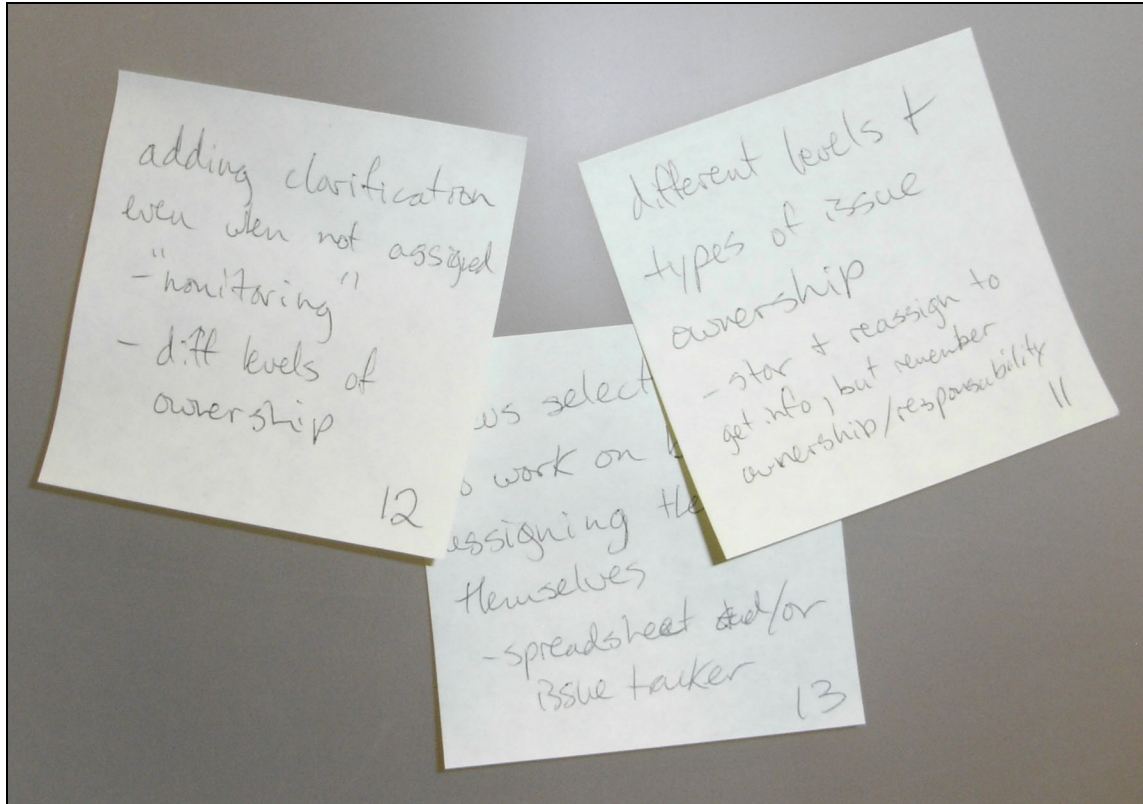 adding clarification
even when not assigned
- "monitoring"
- diff levels of
ownership
12
different levels +
types of issue
ownership
- star + reassign to
get info, but remember
ownership/responsability
11
select
work on
assigning
themselves
- spreadsheet and/or
issue tracker
13